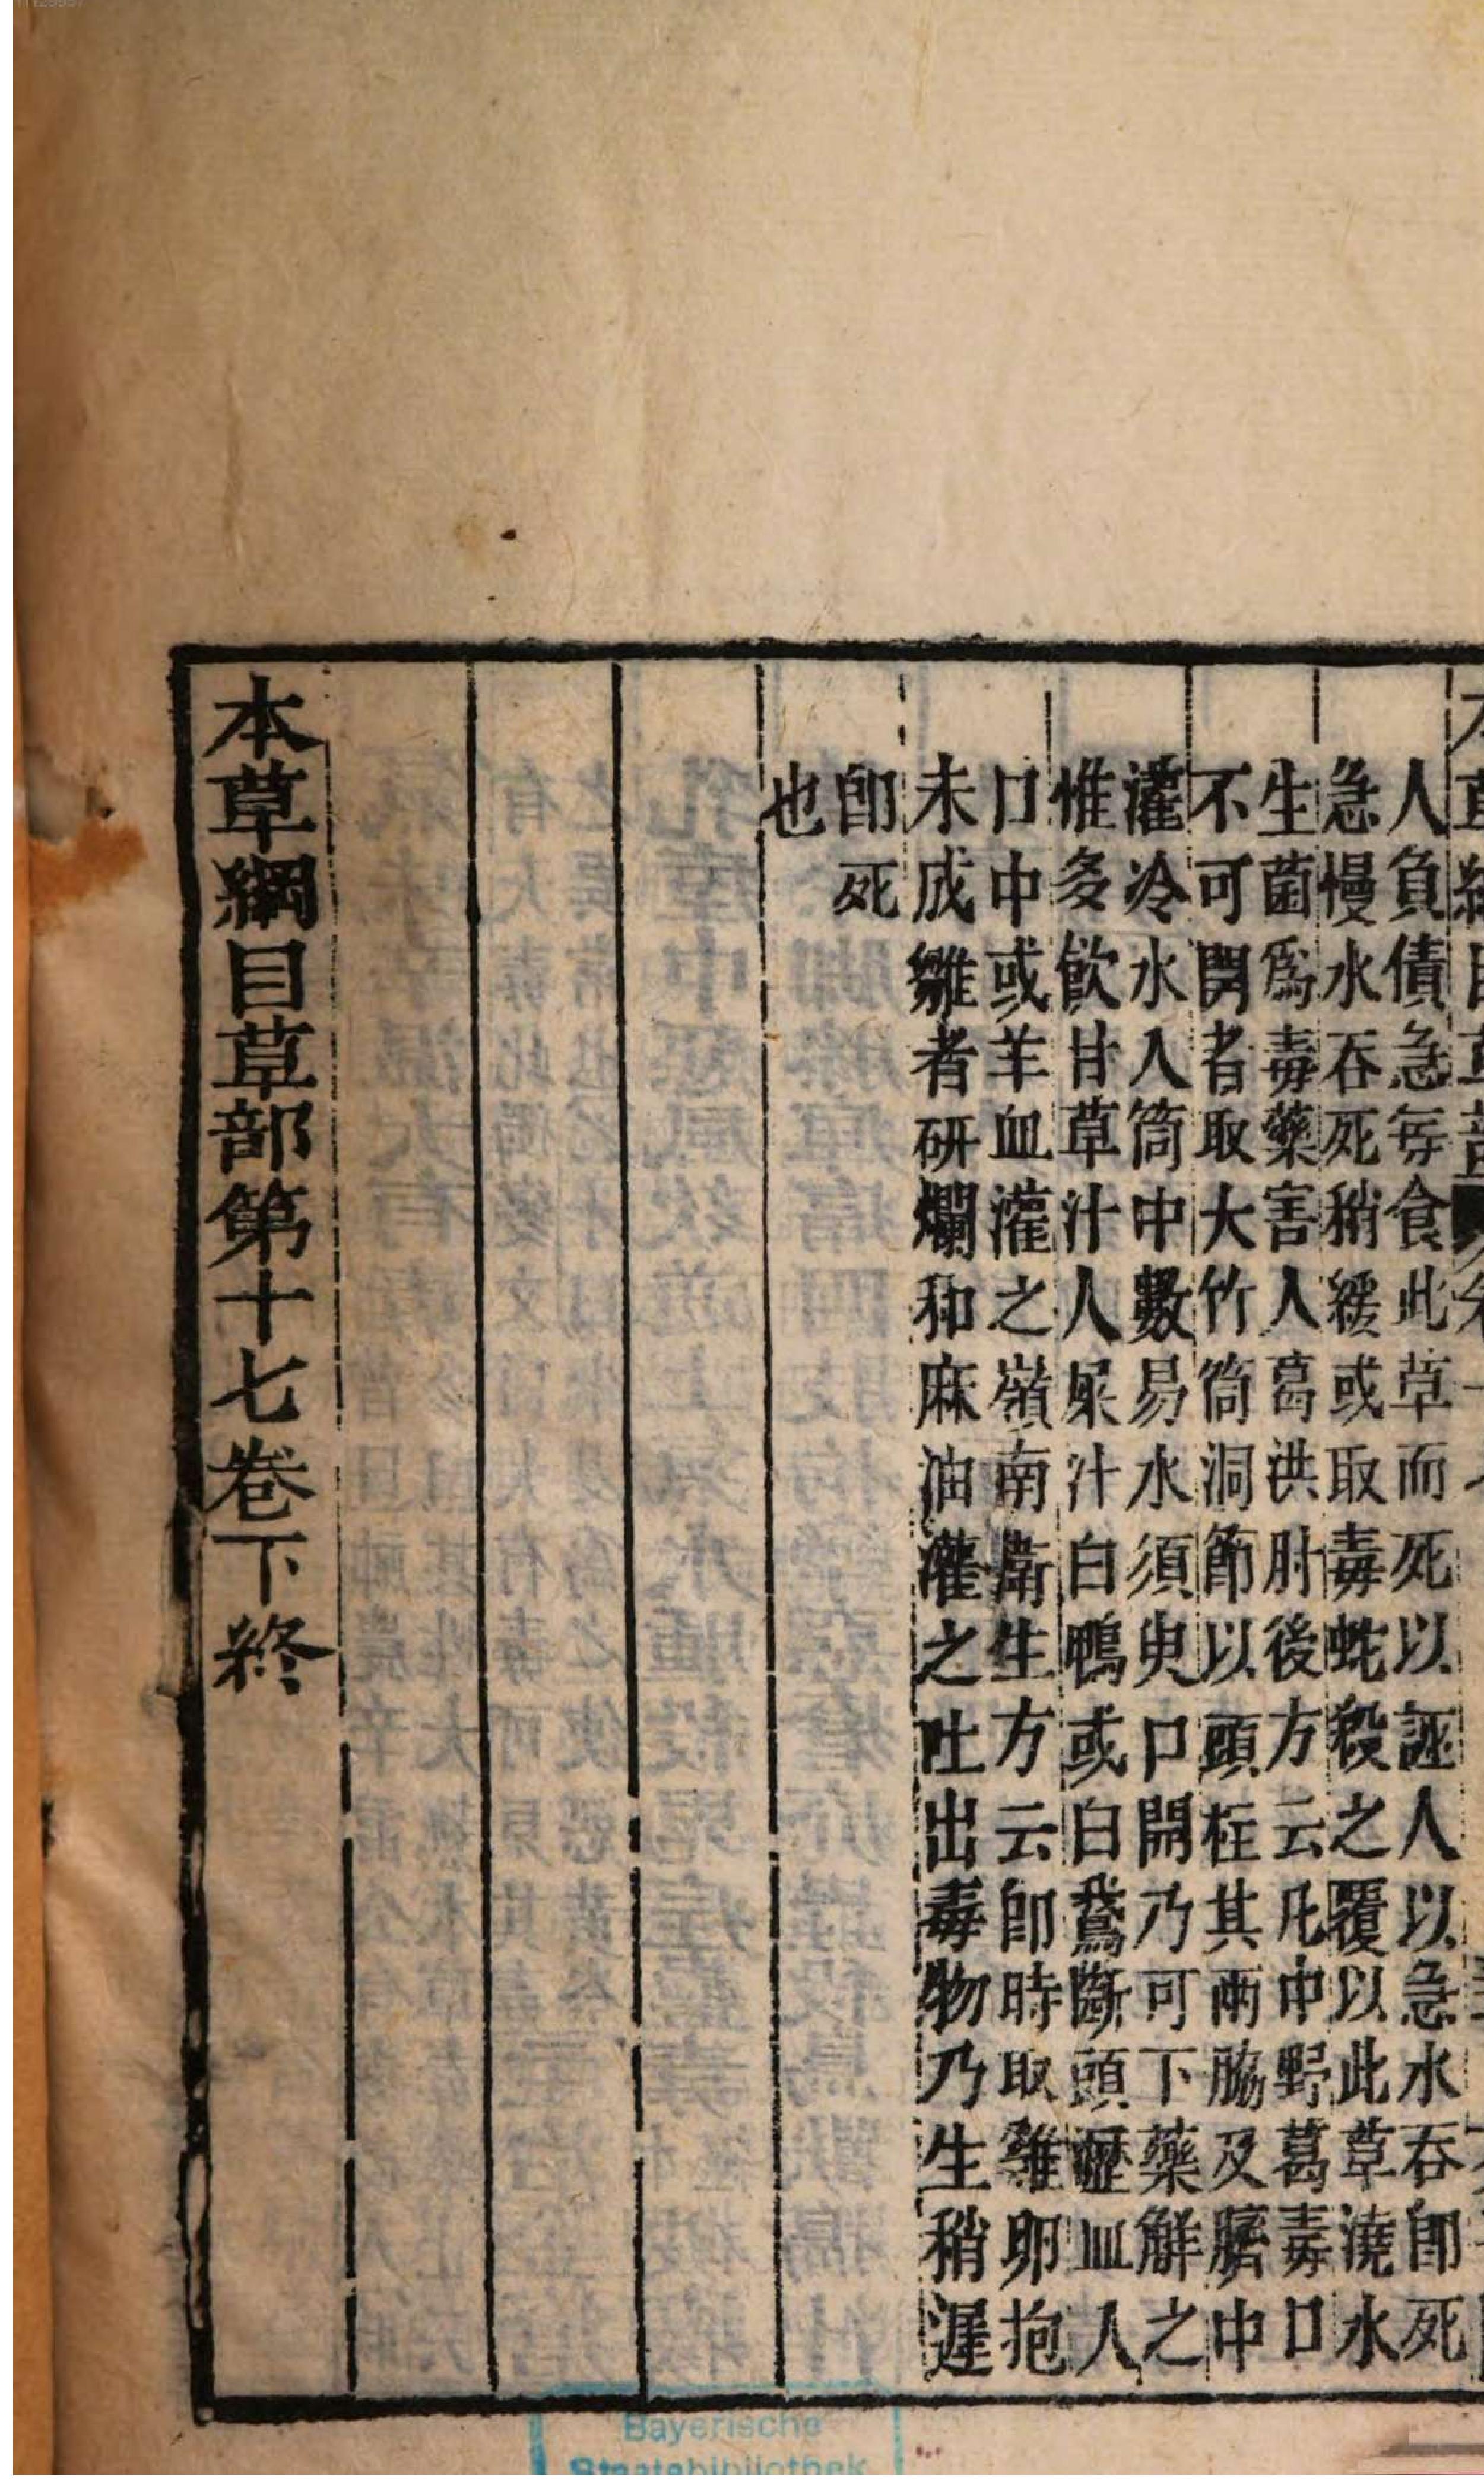 人負債急每食此草而死以誣人以急水吞即死
急慢水吞死稍緩或取毒蛇殺之覆以此草澆水
生菌爲毒藥害人葛洪肘後方云凡中野葛毒口
不可開者取大竹筒洞節以頭柱其兩脇及臍中
灌冷水入筒中數易水須臾口開乃可下藥解之
惟多飲甘草汁人屎汁白鴨或白鵞斷頭瀝血人
口中或羊血灌之嶺南衛生方云即時取雞卵抱
未成雛者研爛和麻油灌之吐出毒物乃生稍遲
即死
也
本草綱目草部第十七卷下終
Bayerische
Staatsbibliothek